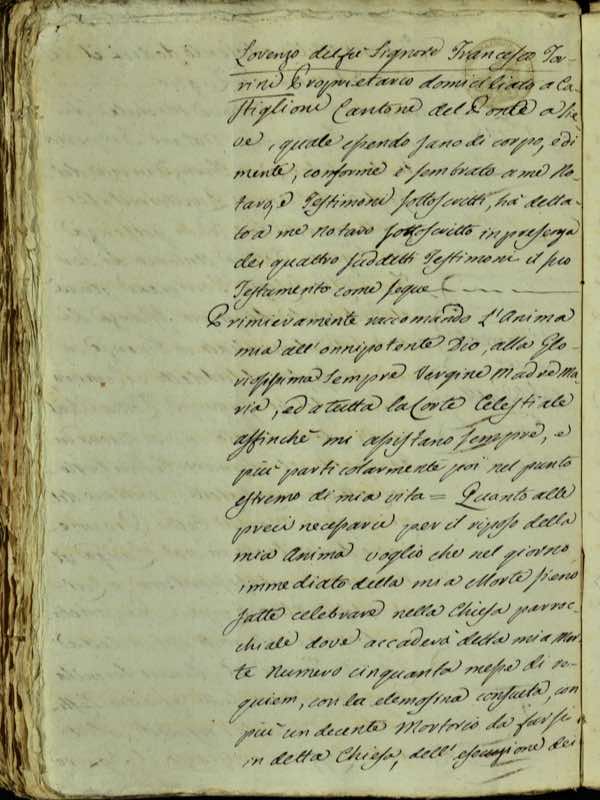 Lorenzo del fù Signore Francesco Ta-
rini Proprietario domiciliato a Ca-
stiglioni Cantone del Ponte a Sie
ve, quale essendo sano di corpo, e di
mente, conforme è sembrato a me No-
taro, e Testimoni sottoscritti, ha detta-
to a me Notaro sottoscritto in presenza
dei quattro suddetti Testimoni il suo
Testamento come segue
Primieramente raccomando L'Anima
mia all'onnipotente Dio, alla Glo-
riosissima sempre Vergine Madre Ma-
ria, ed a tutta la Corte Celestiale
affinchè mi assistano sempre, e
più particolarmente poi nel punto
estremo di mia vita = Quanto alle
preci necessarie per il riposo della
mia Anima voglio che nel giorno
immediato della mia Morte sieno
fatte celebrare nella Chiesa parroc-
chiale dove accaderà detta mia Mor-
te Numero cinquanta messe di re-
quiem, con la elemosina consueta, con
più un decente Mortorio da farsi
in detta Chiesa, dell'esecuzione dei